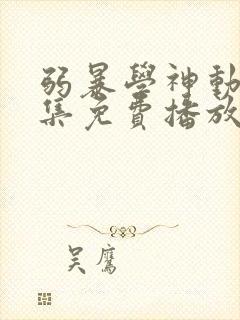 弱暴學神動
集免費播放
吴鷹